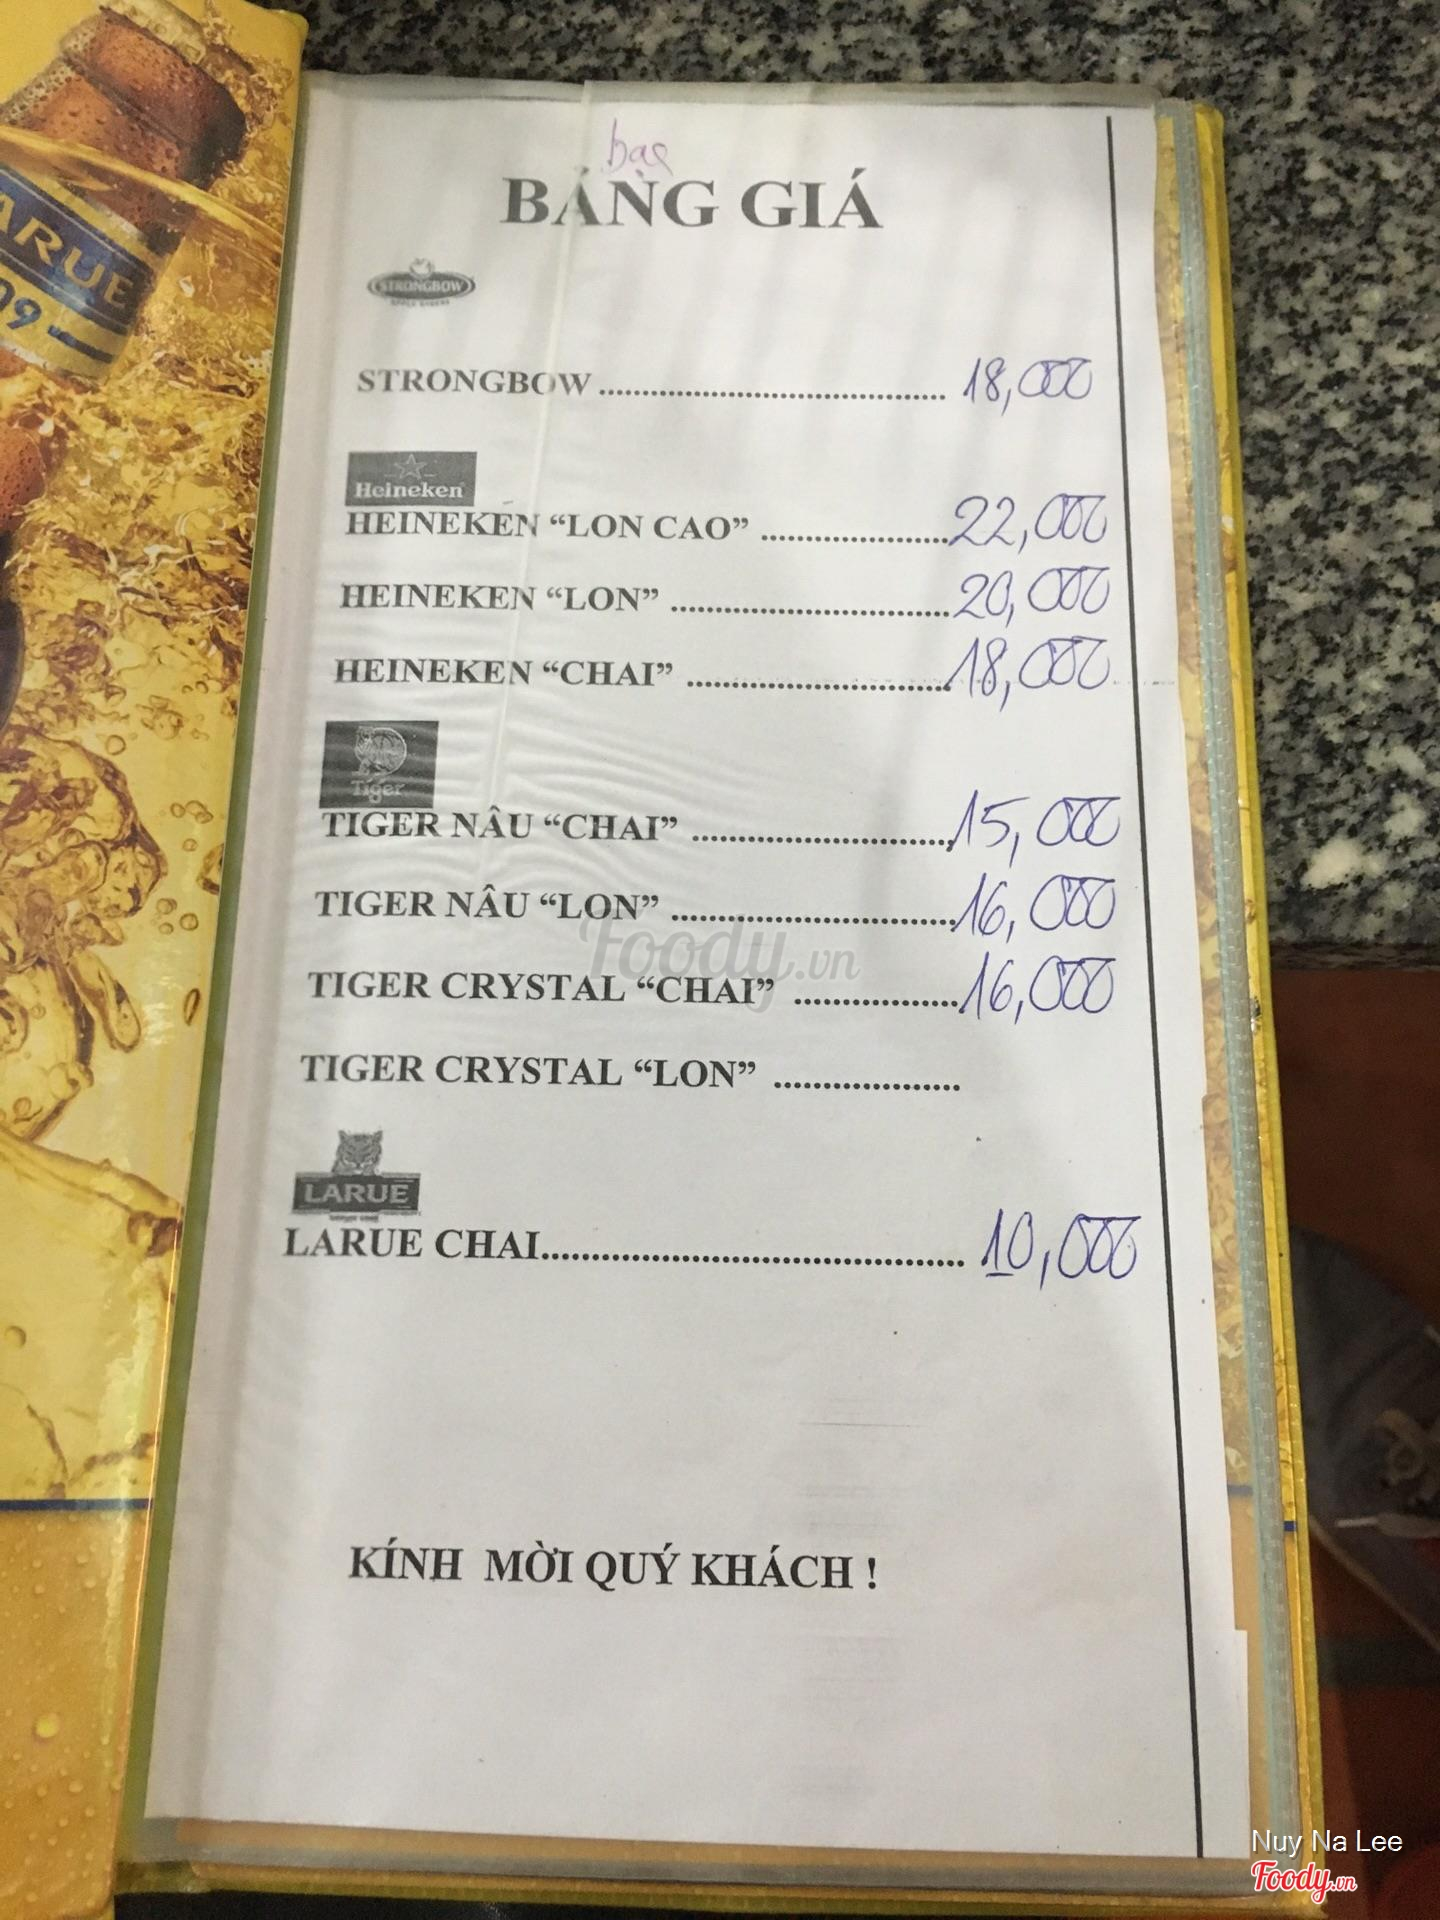 bac
BẢNG GIÁ
STRONGBOW
STRONGBOW ........................................ 18,000
Heineken
HEINEKEN “LON CAO” ..................... 22,000
HEINEKEN “LON” ................................ 20,000
HEINEKEN “CHAI” .............................. 18,000
Tiger
TIGER NÂU “CHAI” ............................. 15,000
TIGER NÂU “LON” ................................ 16,000
Foody.vn
TIGER CRYSTAL “CHAI” ................... 16,000
TIGER CRYSTAL “LON” .....................
LARUE
LARUE CHAI................................................ 10,000
KÍNH MỜI QUÝ KHÁCH !
ARUE
Nuy Na Lee
Foody.vn